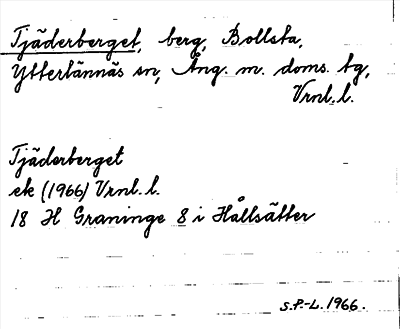 Tjäderberget, berg, Bollsta,
Ytterlännäs sn, Ång. m. doms. tg,
Vrnl. l.
Tjäderberget
ek (1966) Vrnl. l.
18 H Graninge 8 i Hållsätter
S.P.-L. 1966.